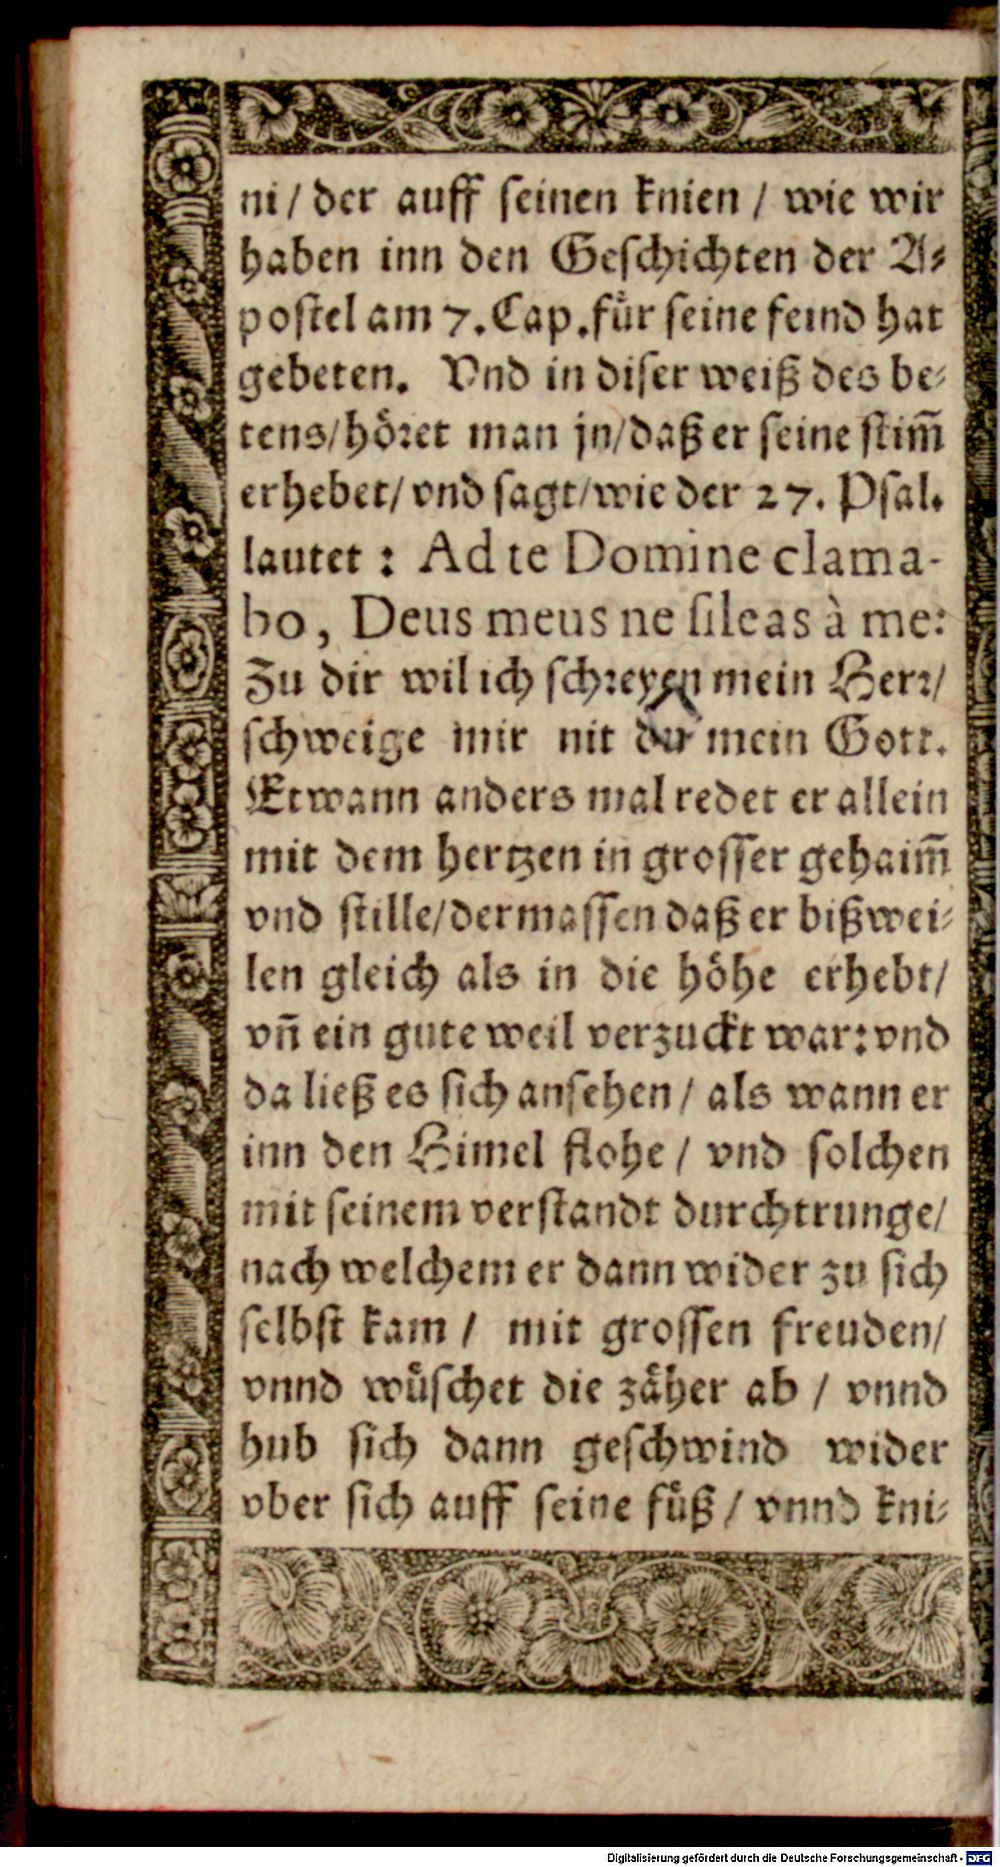 ni / der auff seinen knien / wie wir
haben inn den Geschichten der A⸗
postel am 7. Cap. für seine feind hat
gebeten. Vnd in diser weiß des be⸗
tens/ höret man jn/ daß er seine stim̃
erhebet/ vnd sagt/ wie der 27. Psal.
lautet : Ad te Domine clama-
bo, Deus meus ne sileas à me:
Zu dir wil ich schreyen mein Herr/
schweige mir nit du mein Gott.
Etwann anders mal redet er allein
mit dem hertzen in grosser gehaim̃
vnd stille/ dermassen daß er bißwei⸗
len gleich als in die höhe erhebt/
vñ ein gute weil verzuckt war: vnd
da ließ es sich ansehen / als wann er
inn den Himel flohe / vnd solchen
mit seinem verstandt durchtrunge/
nach welchem er dann wider zu sich
selbst kam / mit grossen freuden/
vnnd wüschet die zäher ab / vnnd
hub sich dann geschwind wider
vber sich auff seine füß / vnnd kni⸗
Digitalisierung gefördert durch die Deutsche Forschungsgemeinschaft - DFG